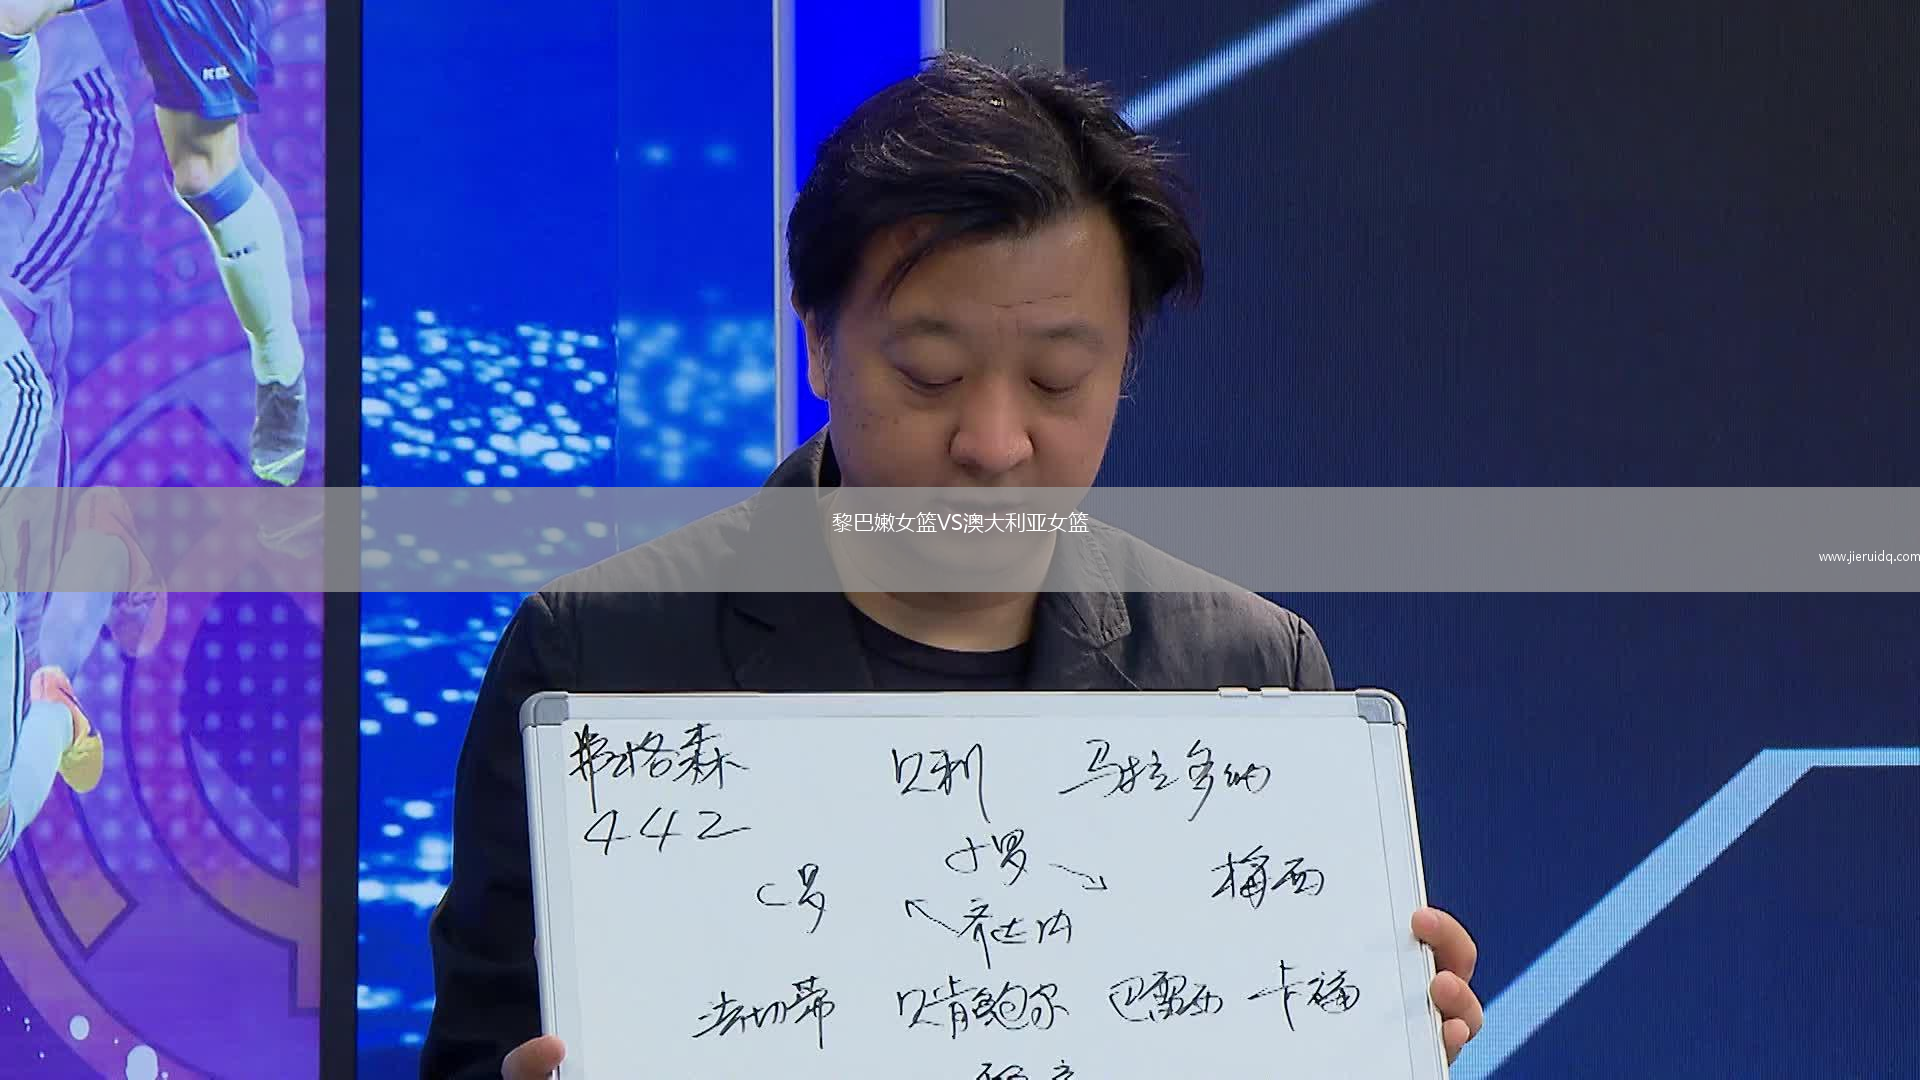 KEL
黎巴嫩女篮VS澳大利亚女篮
www.jieruidq.com
弗格森 贝利 马拉多纳
442
小罗
C罗 梅西
齐达内
法切蒂 贝肯鲍尔 巴雷西 卡福